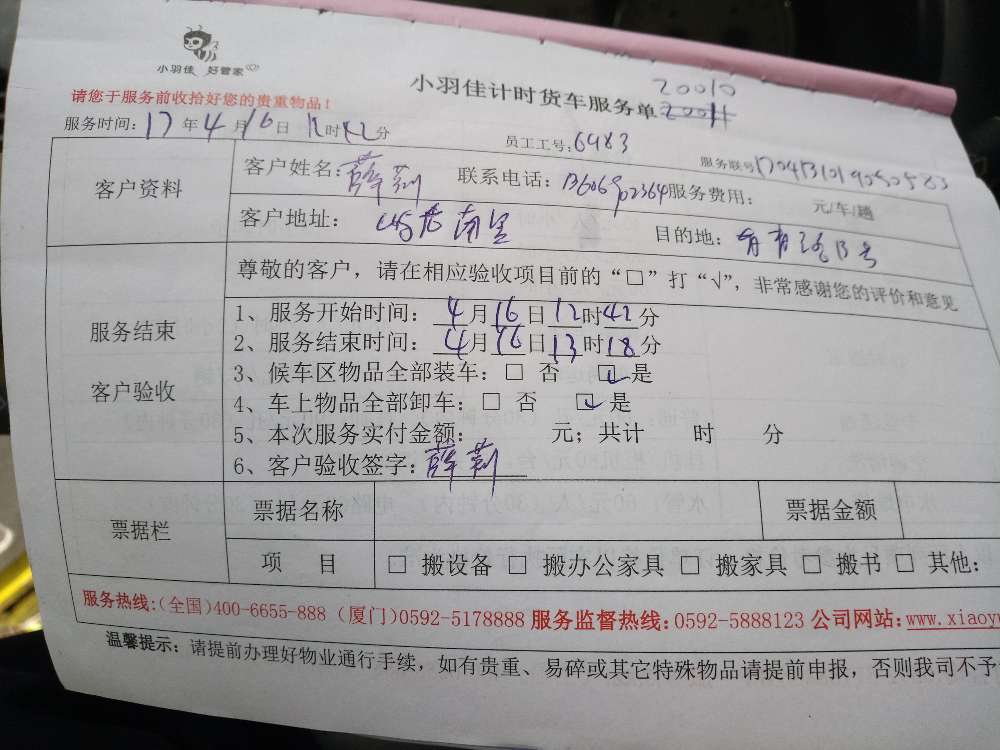 小羽佳 好管家
20010
小羽佳计时货车服务单
请您于服务前收拾好您的贵重物品！
服务时间：17年4月16日 12时42分
员工工号：6983
服务联号
客户资料
客户姓名：薛莉 联系电话：13606902364 服务费用： 元/车/趟
客户地址： 南里 目的地：
尊敬的客户，请在相应验收项目前的“□”打“√”，非常感谢您的评价和意见
服务结束
客户验收
1、服务开始时间：4月16日12时42分
2、服务结束时间：4月16日13时18分
3、候车区物品全部装车：□ 否 ☑是
4、车上物品全部卸车：□ 否 ☑ 是
5、本次服务实付金额： 元；共计 时 分
6、客户验收签字：薛莉
票据栏
票据名称 票据金额
项 目 □ 搬设备 □ 搬办公家具 □ 搬家具 □ 搬书 □ 其他：
服务热线：(全国)400-6655-888 (厦门)0592-5178888 服务监督热线：0592-5888123 公司网站：www.xiaoy
温馨提示：请提前办理好物业通行手续，如有贵重、易碎或其它特殊物品请提前申报，否则我司不予